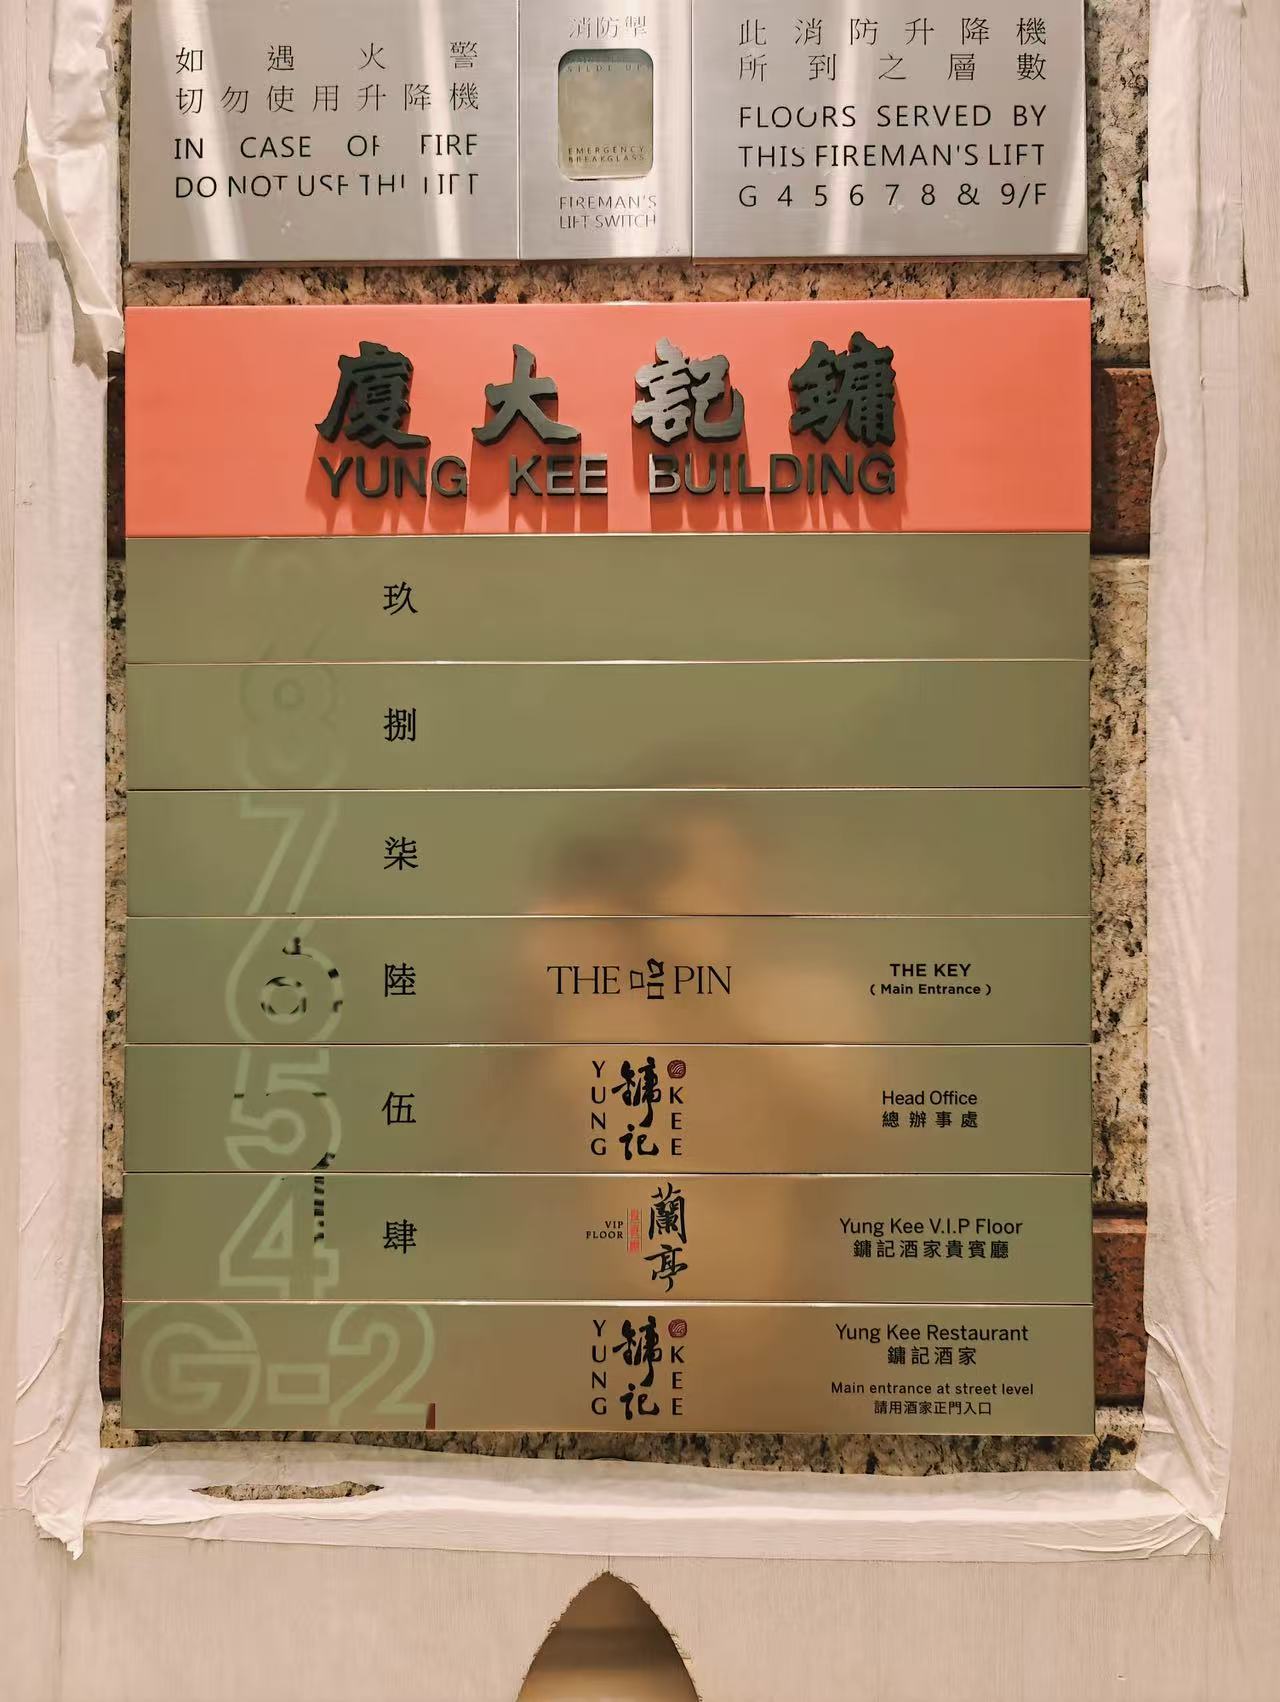 如遇火警
切勿使用升降機
IN CASE OF FIRE
DO NOT USE THE LIFT
消防掣
EMERGENCY
BREAKGLASS
FIREMAN'S
LIFT SWITCH
此消防升降機
所到之層數
FLOORS SERVED BY
THIS FIREMAN'S LIFT
G 4 5 6 7 8 & 9/F
廈大記鏞
YUNG KEE BUILDING
玖
8 捌
7 柒
6 陸 THE 哈 PIN THE KEY
( Main Entrance )
5 伍 YUNG 鏞記 KEE Head Office
總辦事處
4 肆 VIP FLOOR 蘭亭 Yung Kee V.I.P Floor
鏞記酒家貴賓廳
G-2 YUNG 鏞記 KEE Yung Kee Restaurant
鏞記酒家
Main entrance at street level
請用酒家正門入口